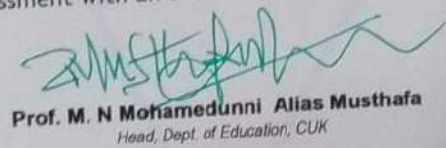 ssment with an
Prof. M. N Mohamedunni Alias Musthafa
Head, Dept. of Education, CUK